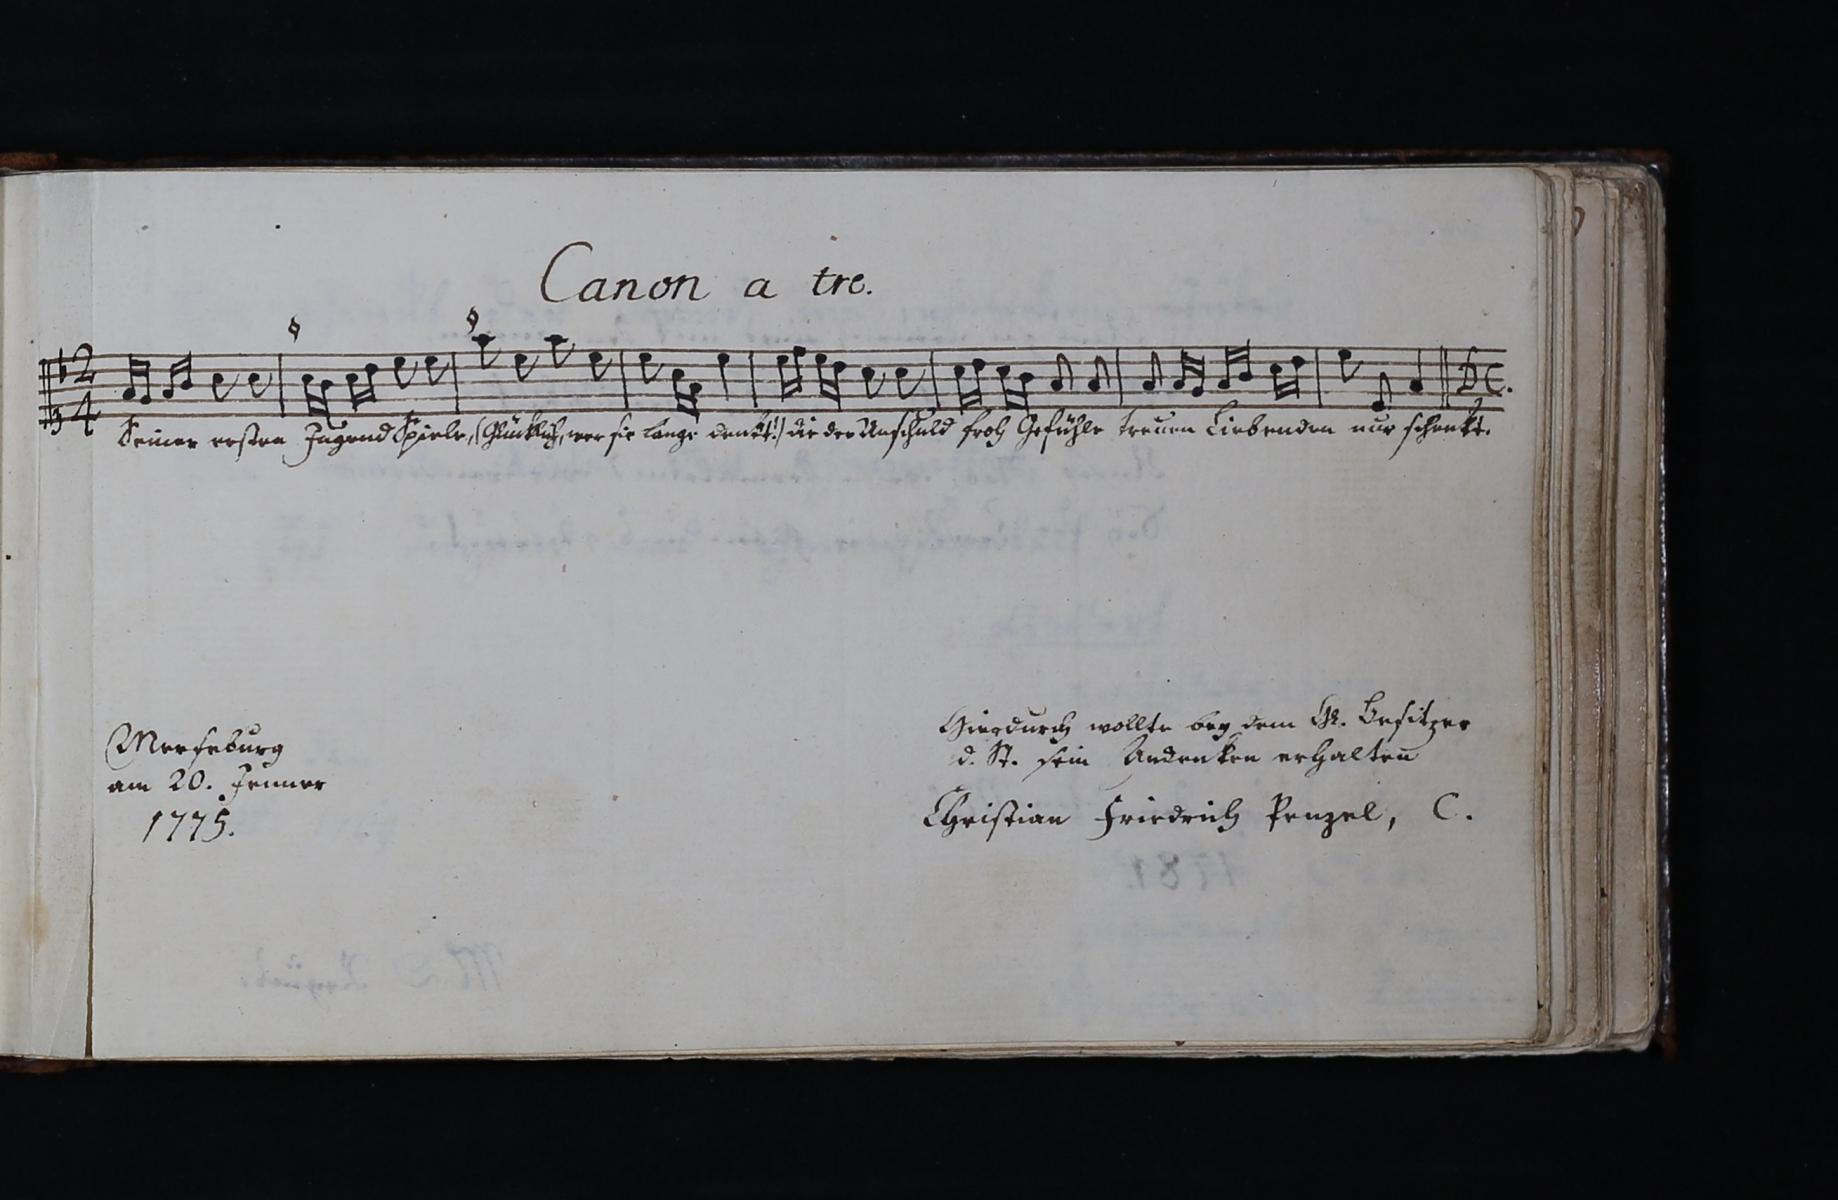 Canon a tre.
Seiner ersten Jugend Spiele, (Glücklich, wer sie lange denkt!) die der Unschuld froh Gefühle treuen Liebenden nur schenkt.
Merseburg
am 20. Jenner
1775.
Hierdurch wollte bey dem H. Besitzer
d. St. sein Andenken erhalten
Christian Friedrich Penzel, C.